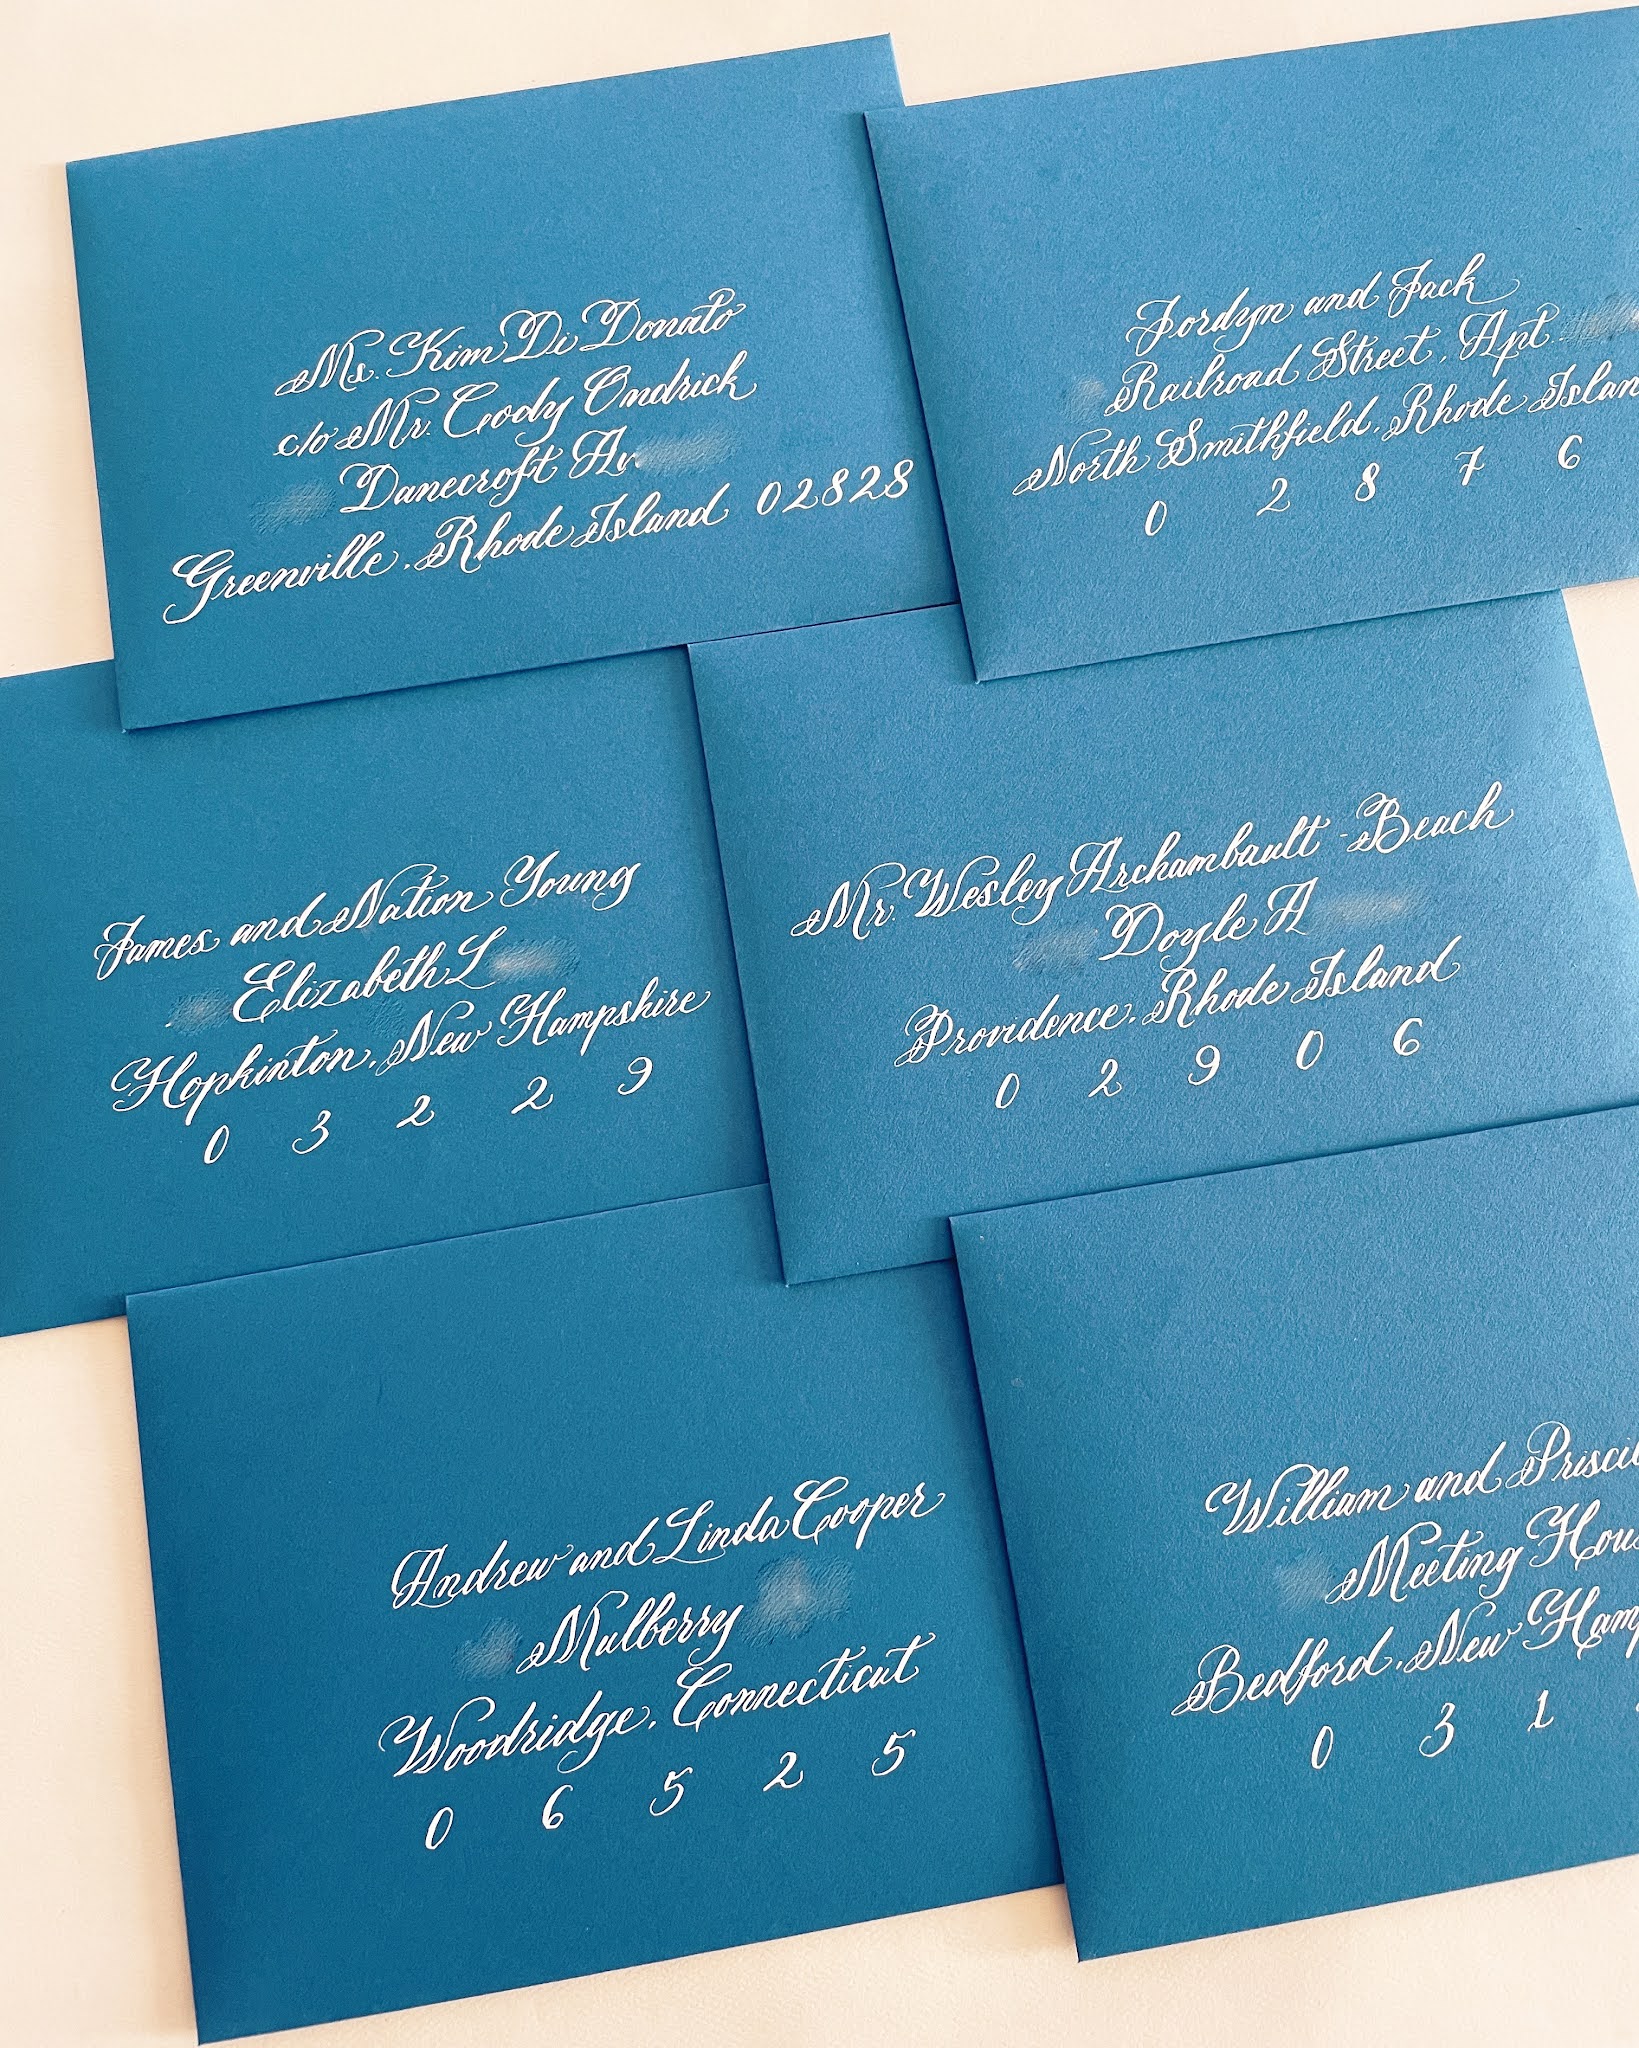 Ms. Kim Di Donato
c/o Mr. Cody Ondrick
Danecroft Av
Greenville, Rhode Island 02828
Jordyn and Jack
Railroad Street, Apt
North Smithfield, Rhode Islan
0 2 8 7 6
James and Nation Young
Elizabeth L
Hopkinton, New Hampshire
0 3 2 2 9
Mr. Wesley Archambault-Beach
Doyle A
Providence, Rhode Island
0 2 9 0 6
Andrew and Linda Cooper
Mulberry
Woodridge, Connecticut
0 6 5 2 5
William and Prisci
Meeting Hou
Bedford, New Hamp
0 3 1